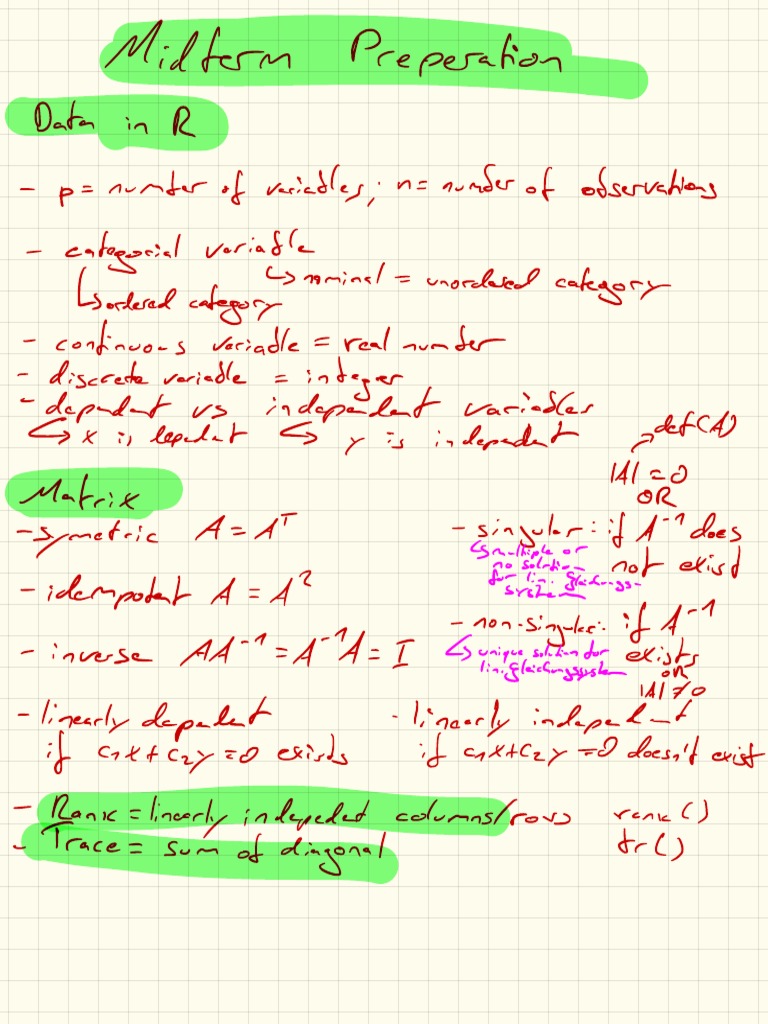 Midterm Preperation
Data in R
- p = number of variables; n = number of observations
- categorial variable
↳ nominal = unordered category
↳ ordered category
- continuous variable = real number
- discrete variable = integer
- dependent vs independent variables
↳ x is dependent ↳ y is independent
Matrix
- symetric A = Aᵀ
- idempotent A = A²
- inverse AA⁻¹ = A⁻¹A = I
- linearly dependent
if c1x + c2y = 0 exists
→ det(A)
|A| = 0
OR
- singular: if A⁻¹ does
not exist
↳ multiple or
no solution
for lin. Gleichungs-
system
- non-singular: if A⁻¹
exists
OR
|A| ≠ 0
↳ unique solution for
lin. Gleichungssystem
- linearly independent
if c1x + c2y = 0 doesn't exist
- Rank = linearly indepeded columns/rows rank()
- Trace = sum of diagonal tr()